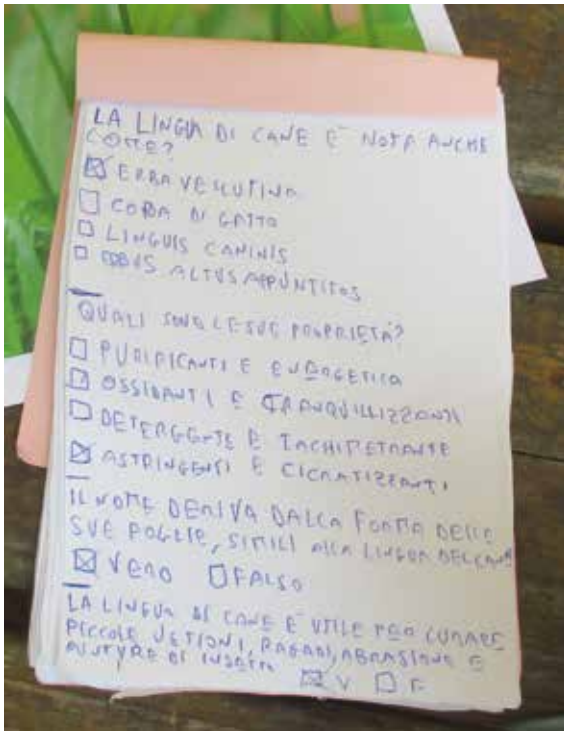 LA LINGUA DI CANE È NOTA ANCHE
COME?
☒ ERBA VELLUTINA
☐ CODA DI GATTO
☐ LINGUIS CANINIS
☐ ALTUS APPUNTITOS
QUALI SONO LE SUE PROPRIETÀ?
☐ PURIFICANTI E ENERGETICA
☐ OSSIDANTI E TRANQUILLIZZANTI
☐ DETERGENTE E
☒ ASTRINGENTI E CICATRIZZANTI
IL NOME DERIVA DALLA FORMA DELLE
SUE FOGLIE, SIMILI ALLA LINGUA DEL CANE
☒ VERO ☐ FALSO
LA LINGUA DI CANE È UTILE PER CURARE
PICCOLE RAGADI, ABRASIONI E
PUNTURE DI INSETTI ☒ V ☐ F